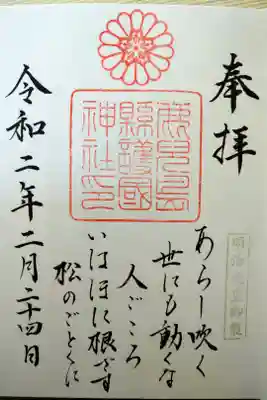 奉拝
鹿兒島
縣護國
神社印
明治天皇御製
あらし吹く
世にも動くな
人ごころ
いはほに根ざす
松のごとくに
令和二年二月二十四日